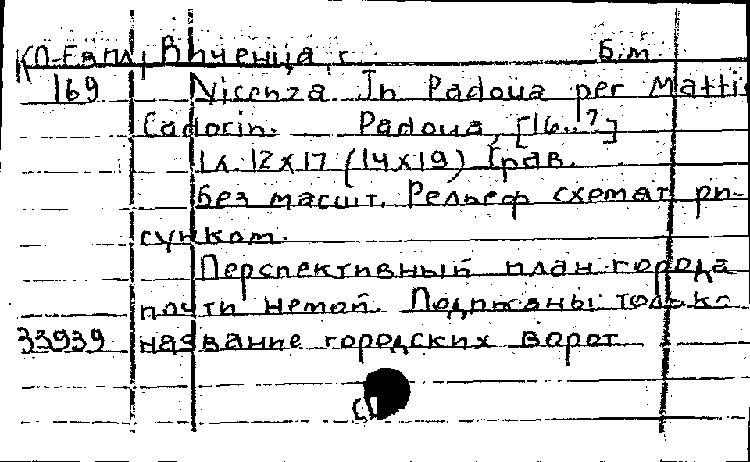 КП-Евпл Виченца, г. Б.м.
169 Vicenza. In Padoua per Matti
Cadorin. — Padoua, [16..?]
1л. 12х17 (14х19) Грав.
Без масшт. Рельеф схемат. ри-
сунком.
Перспективный план города
почти немой. Подписаны только
33939 название городских ворот